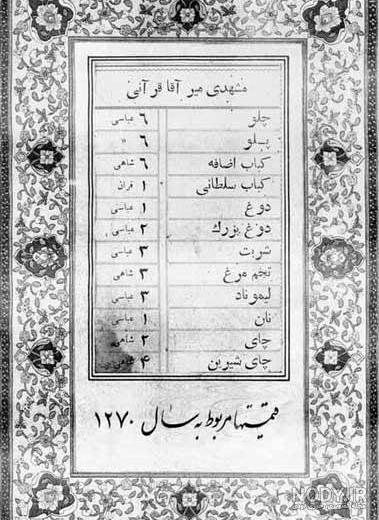 مشهدی میر آقا قرآنی
چلو ۶ عباسی
پلو ۶ «
کباب اضافه ۶ شاهی
کباب سلطانی ۱ قران
دوغ ۱ عباسی
دوغ بزرگ ۲ عباسی
شربت ۳ عباسی
تخم مرغ ۳ شاهی
لیموناد ۳ عباسی
نان ۱ عباسی
چای ۲ شاهی
چای شیرین ۴ شاهی
قیمتها مربوط به سال ۱۲۷۰
NODY.IR